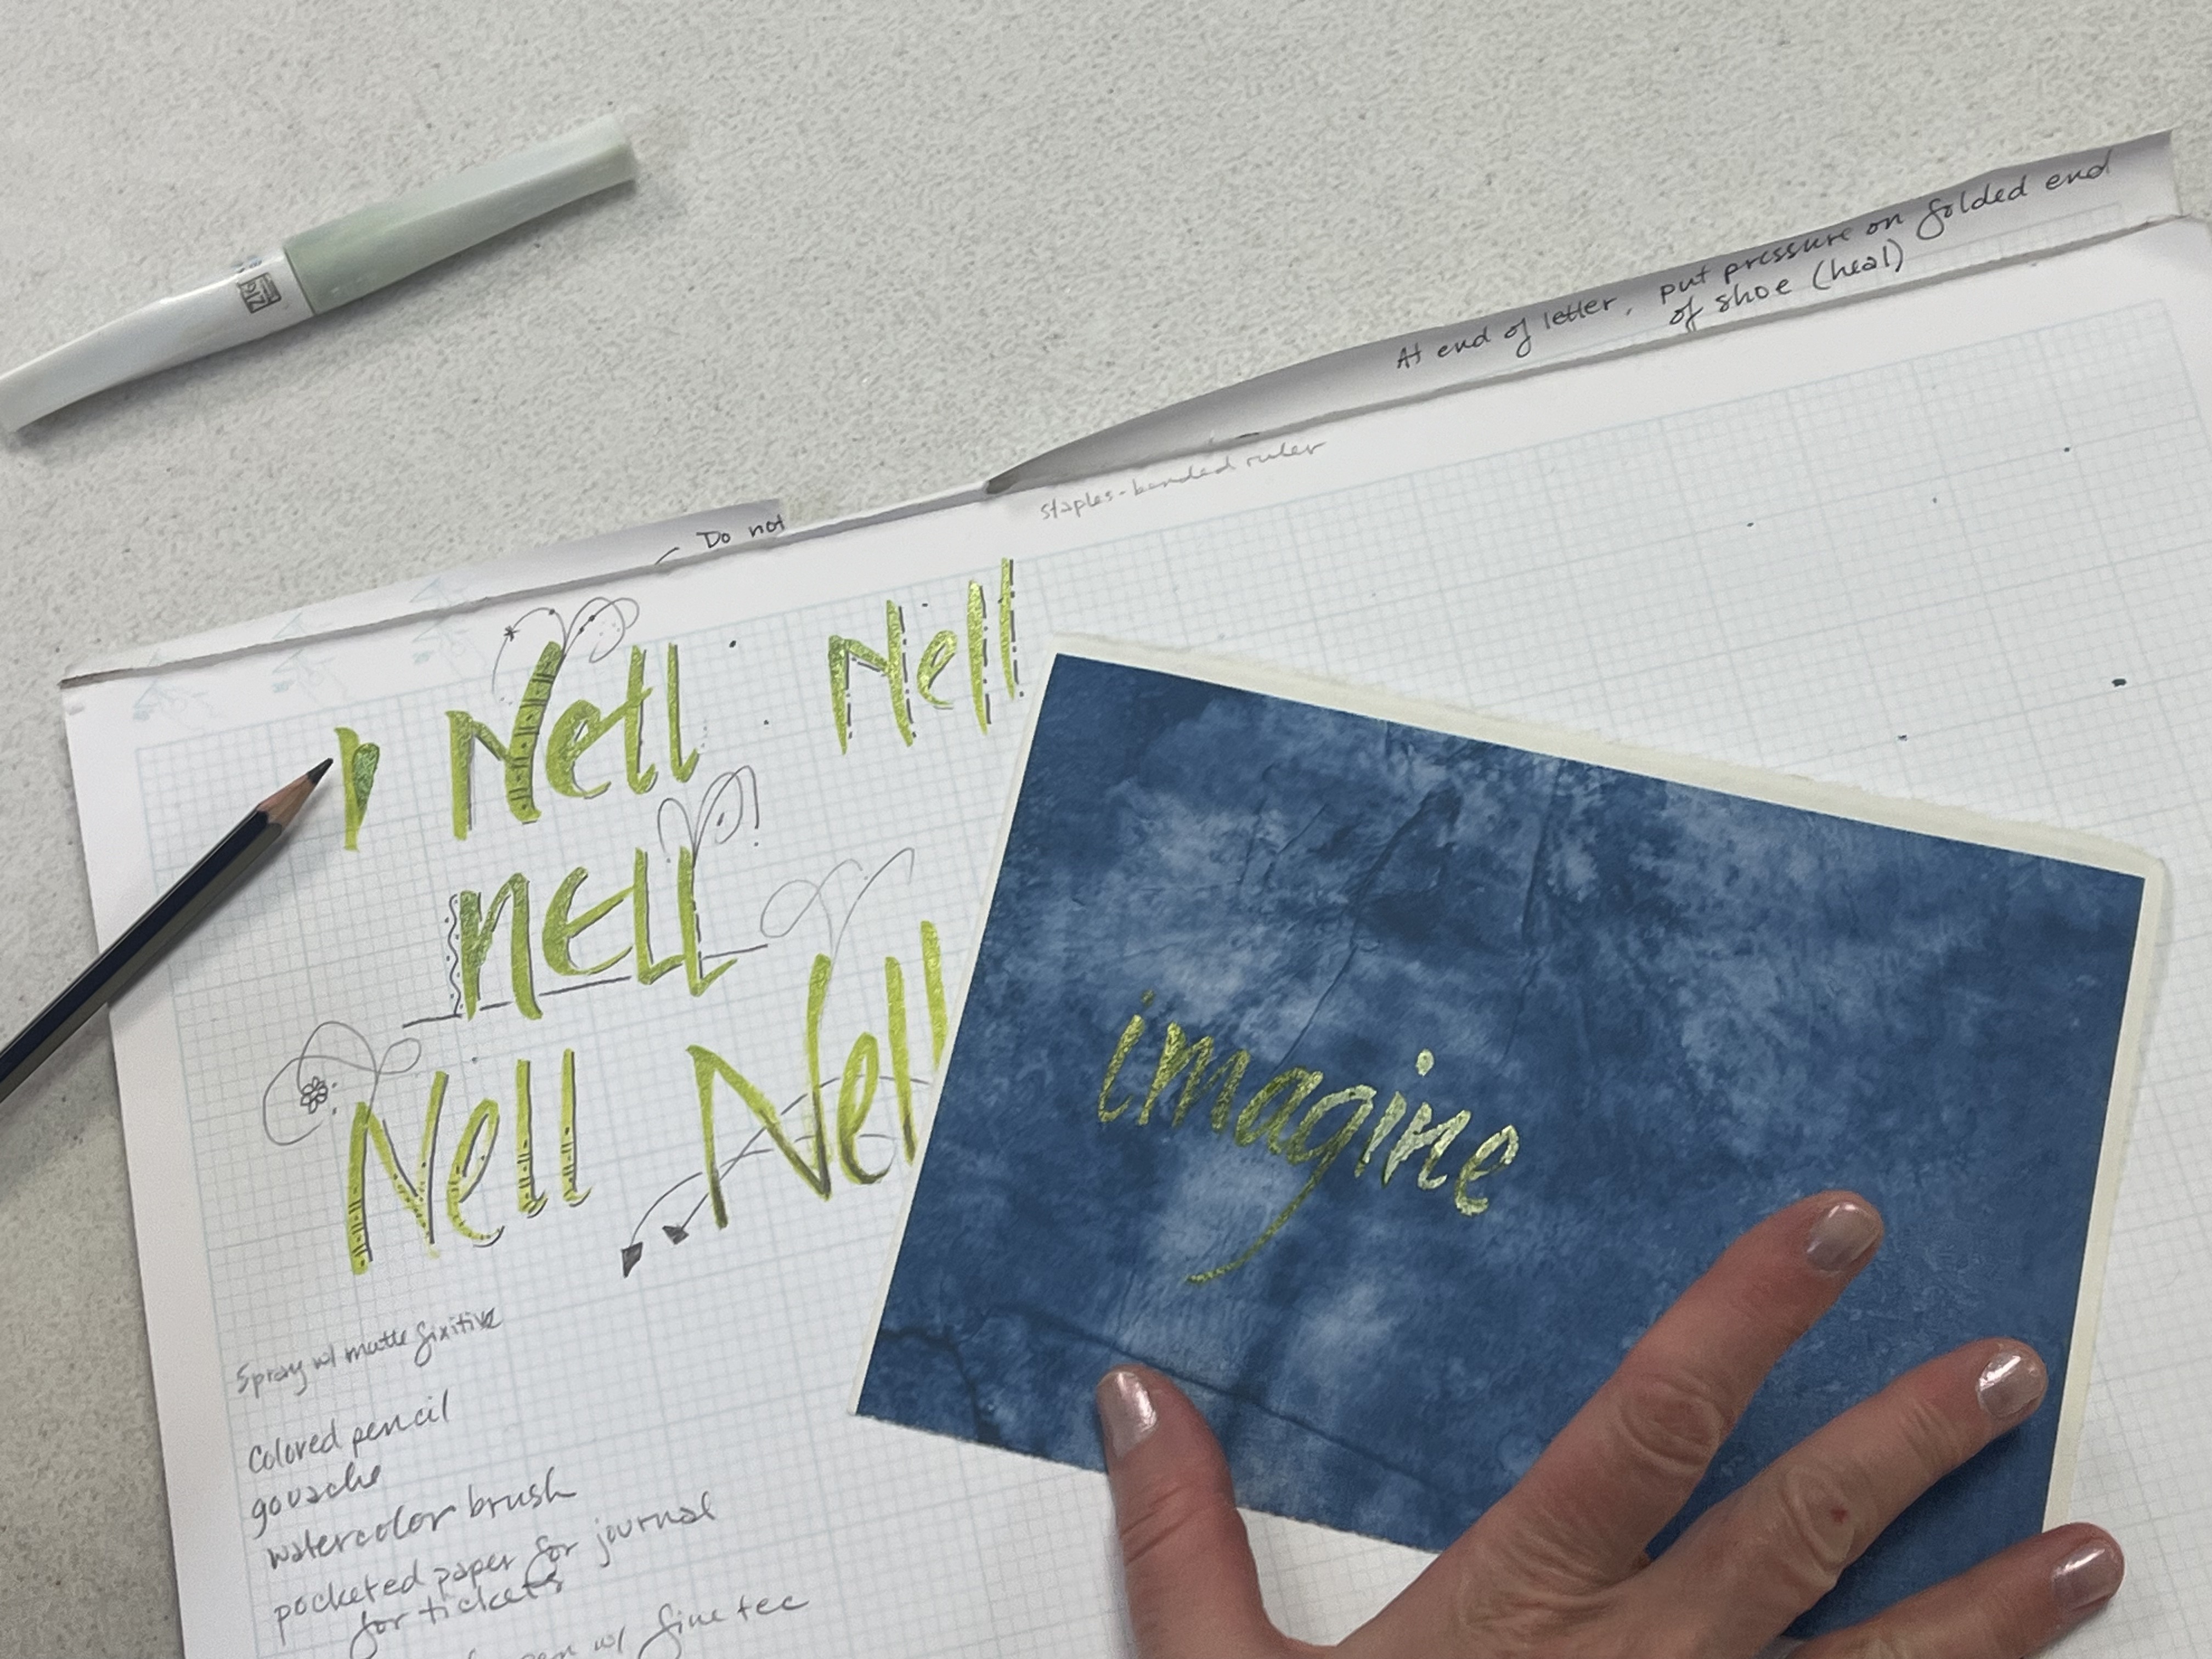 ZIG
At end of letter, put pressure on folded end
of shoe (heal)
staples-banded ruler
Do not
Nell Nell
nell
Nell Nell
imagine
Spray w/ matte fixitive
Colored pencil
gouache
watercolor brush
pocketed paper for journal
for tickets
pen w/ finetec